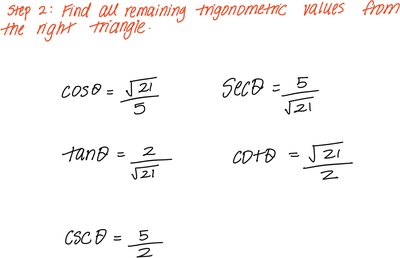 Step 2: Find all remaining trigonometric values from
the right triangle.
cosθ = √21/5
secθ = 5/√21
tanθ = 2/√21
cotθ = √21/2
cscθ = 5/2